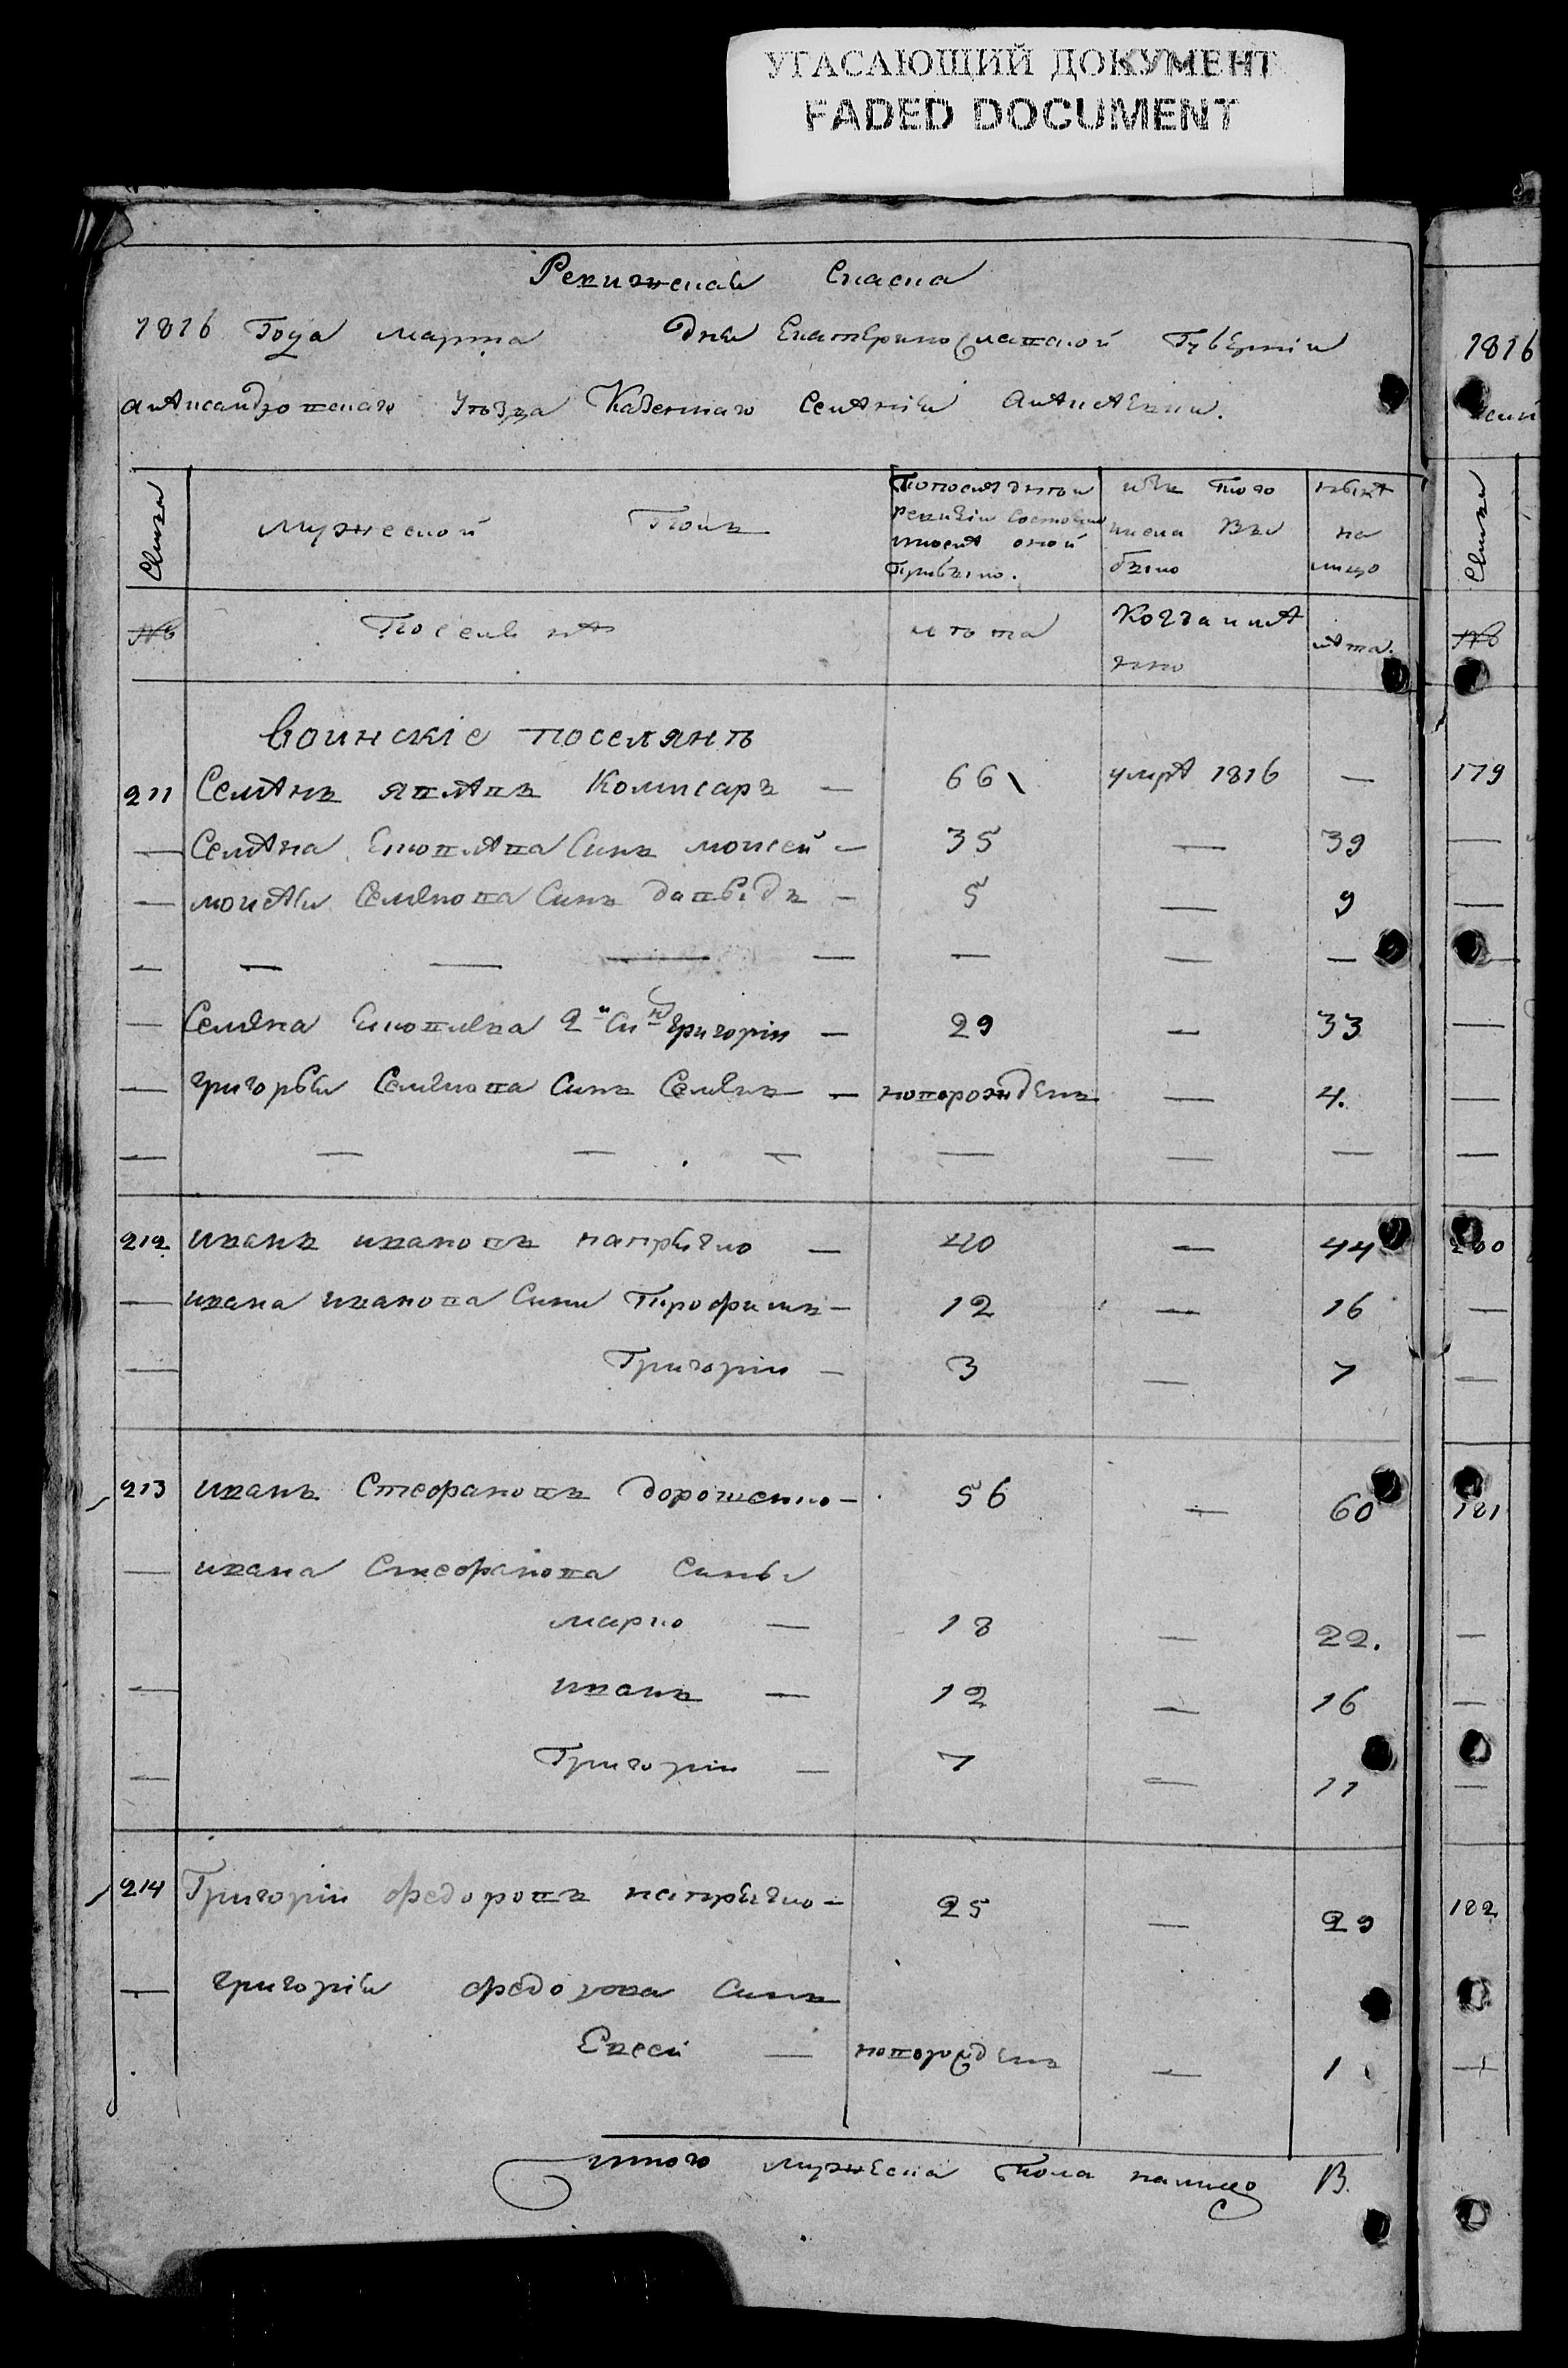 УГАСАЮЩИЙ ДОКУМЕНТ
FADED DOCUMENT
Ревижская Сказка
1816 Года марта дня Екатеринославской Губернiи
александровскаго уезда Казеннаго Селенiя алексеевки.
Семья
мужеской Полъ
Попоследнеи ревизiи состояло
ипосле оной прибыло.
изъ того числа Выбыло
ныне на лицо
№ Поселяне лета Когда имянно лета.
Воинскiе поселянѣ
211 Семенъ Комисаръ — 66 умре 1816 —
— Семена Сынъ моисей — 35 — 39
— моисея Семенова Сынъ давыдъ — 5 — 9
— — — — — — — —
— Семена 2й Сынъ григорiи — 29 — 33
— григорья Семенова Сынъ Семенъ — новорожденъ — 4.
— — — — — — —
212 иванъ ивановъ — 40 — 44
— ивана иванова Сыны Трофимъ — 12 — 16
— Григорiи — 3 — 7
213 иванъ Стефановъ дорошенко — 56 — 60
— ивана Стефанова Сыны
марко — 18 — 22.
— иванъ — 12 — 16
— Григорiи — 7 — 11
214 Григорiи федоровъ — 25 — 29
— григорiя федорова Сынъ
Евсеи — новорожденъ — 1
итого мужеска пола налицо 13.
1816
Семья
№
179
181
182